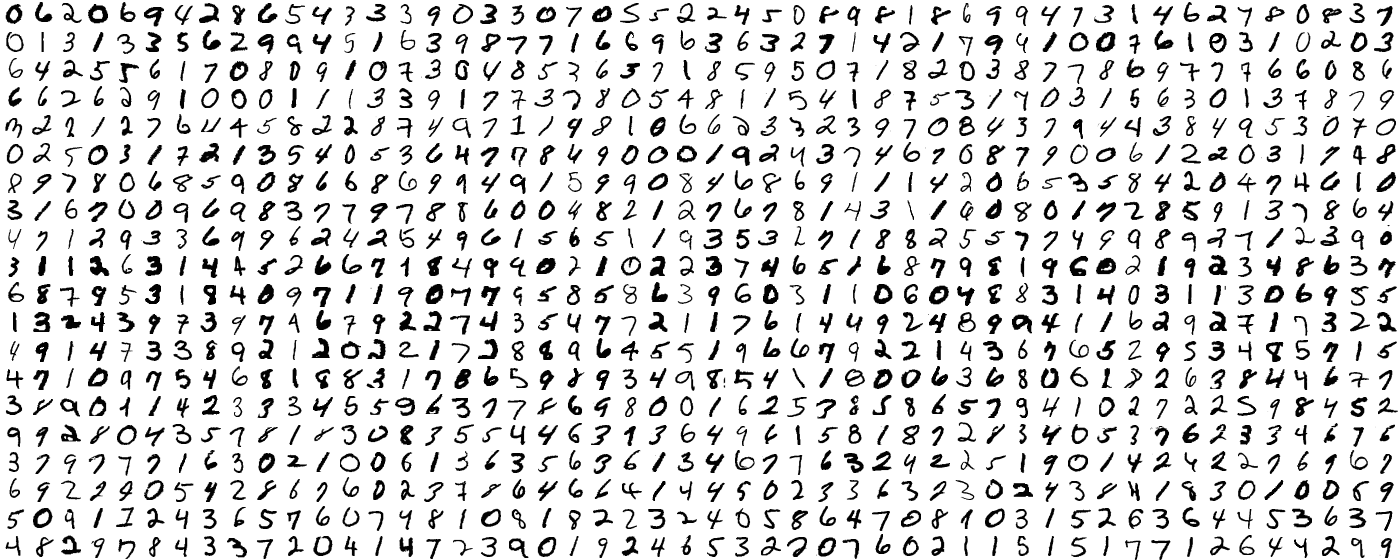 0 6 2 0 6 9 4 2 8 6 5 4 3 3 3 9 0 3 3 0 7 0 5 5 2 2 4 5 0 8 9 8 1 8 6 9 9 4 7 3 1 4 6 2 7 8 0 8 3 7
0 1 3 1 3 3 5 6 2 9 9 4 5 1 6 3 9 8 7 7 1 6 6 9 6 3 6 3 2 7 1 4 2 1 7 9 4 1 0 0 7 6 1 0 3 1 0 2 0 3
6 4 2 5 5 6 1 7 0 8 0 9 1 0 7 3 0 4 8 5 3 6 3 7 1 8 5 9 5 0 7 1 8 2 0 3 8 7 7 8 6 9 7 7 7 6 6 0 8 6
6 6 2 6 2 9 1 0 0 0 1 1 1 3 3 9 1 7 7 3 7 8 0 5 4 8 1 1 5 4 1 8 7 5 3 1 7 0 3 1 5 6 3 0 1 3 7 8 7 9
2 2 1 2 7 6 4 4 5 8 2 2 8 7 4 9 7 1 1 9 8 1 0 6 6 2 3 3 2 3 9 7 0 8 4 3 7 9 4 4 3 8 4 9 5 3 0 7 0
0 2 5 0 3 1 7 2 1 3 5 4 0 5 3 6 4 7 7 7 8 4 9 0 0 0 1 9 2 4 3 7 4 6 7 0 8 7 9 0 0 6 1 2 2 0 3 1 7 4 8
8 9 7 8 0 6 8 5 9 0 8 6 6 8 6 9 9 4 9 1 5 9 9 0 8 4 6 8 6 9 1 1 1 4 2 0 6 5 3 5 8 4 2 0 4 7 4 6 1 0
3 1 6 7 0 0 9 6 9 8 3 7 7 9 7 8 8 6 0 0 4 8 2 1 2 7 6 7 8 1 4 3 1 1 6 0 8 0 1 7 2 8 5 9 1 3 7 8 6 4
4 7 1 2 9 3 3 6 9 9 6 2 4 2 5 4 9 6 1 5 6 5 1 1 9 3 5 3 2 7 1 8 8 2 5 5 7 7 4 9 9 8 9 2 7 1 2 3 9 0
3 1 1 2 6 3 1 4 4 5 2 6 6 7 1 8 4 9 9 0 2 1 0 2 2 3 7 4 6 5 1 6 8 7 9 8 1 9 6 0 2 1 9 2 3 4 8 6 3 7
6 8 7 9 5 3 1 8 4 0 9 7 1 1 9 0 7 7 9 5 8 5 8 6 3 9 6 0 3 1 1 0 6 0 4 8 8 3 1 4 0 3 1 1 3 0 6 9 5 5
1 3 2 4 3 9 7 3 9 7 4 6 7 9 2 2 7 4 3 5 4 7 7 2 1 1 7 6 1 4 4 9 2 4 8 9 9 4 1 1 6 2 9 2 7 1 7 3 2 2
4 9 1 4 7 3 3 8 9 2 1 2 0 2 2 1 7 2 8 8 9 6 4 5 5 1 9 6 6 7 9 2 2 1 4 3 6 7 6 5 2 9 5 3 4 8 5 7 1 5
4 7 1 0 9 7 5 4 6 8 1 8 8 3 1 7 8 6 5 9 8 9 3 4 9 8 5 4 1 1 8 0 0 6 3 6 8 0 6 1 8 2 6 3 8 4 4 6 7 7
3 8 9 0 1 1 4 2 3 3 3 4 5 5 9 6 3 7 7 8 6 9 8 0 0 1 6 2 5 3 8 5 8 6 5 7 9 4 1 0 2 7 2 2 5 9 8 4 5 2
9 9 2 8 0 4 3 5 7 8 1 8 3 0 8 3 5 5 4 4 6 3 9 3 6 4 9 6 1 5 8 1 8 7 2 8 3 4 0 5 3 7 6 2 3 3 4 6 7 6
3 7 9 7 7 7 7 1 6 3 0 2 1 0 0 6 1 3 6 3 5 6 3 6 1 3 4 6 7 7 6 3 2 4 2 2 2 5 1 9 0 1 4 2 4 2 2 7 6 9 6 7
6 9 2 2 2 0 5 4 2 8 6 7 6 0 2 3 7 8 6 4 6 6 4 1 4 4 5 0 2 3 3 6 3 2 3 0 2 4 3 8 4 1 8 3 0 1 0 0 6 9
5 0 9 1 7 2 4 3 6 5 7 6 0 7 4 8 1 0 8 1 8 2 2 3 2 4 0 5 8 6 4 7 0 8 1 0 3 1 5 2 6 3 6 4 4 5 3 6 3 7
4 8 2 9 7 8 4 3 3 7 2 0 4 1 4 7 2 3 9 0 1 9 2 4 6 5 3 2 2 0 7 6 0 2 1 1 5 1 5 1 7 7 1 2 6 4 4 2 9 9